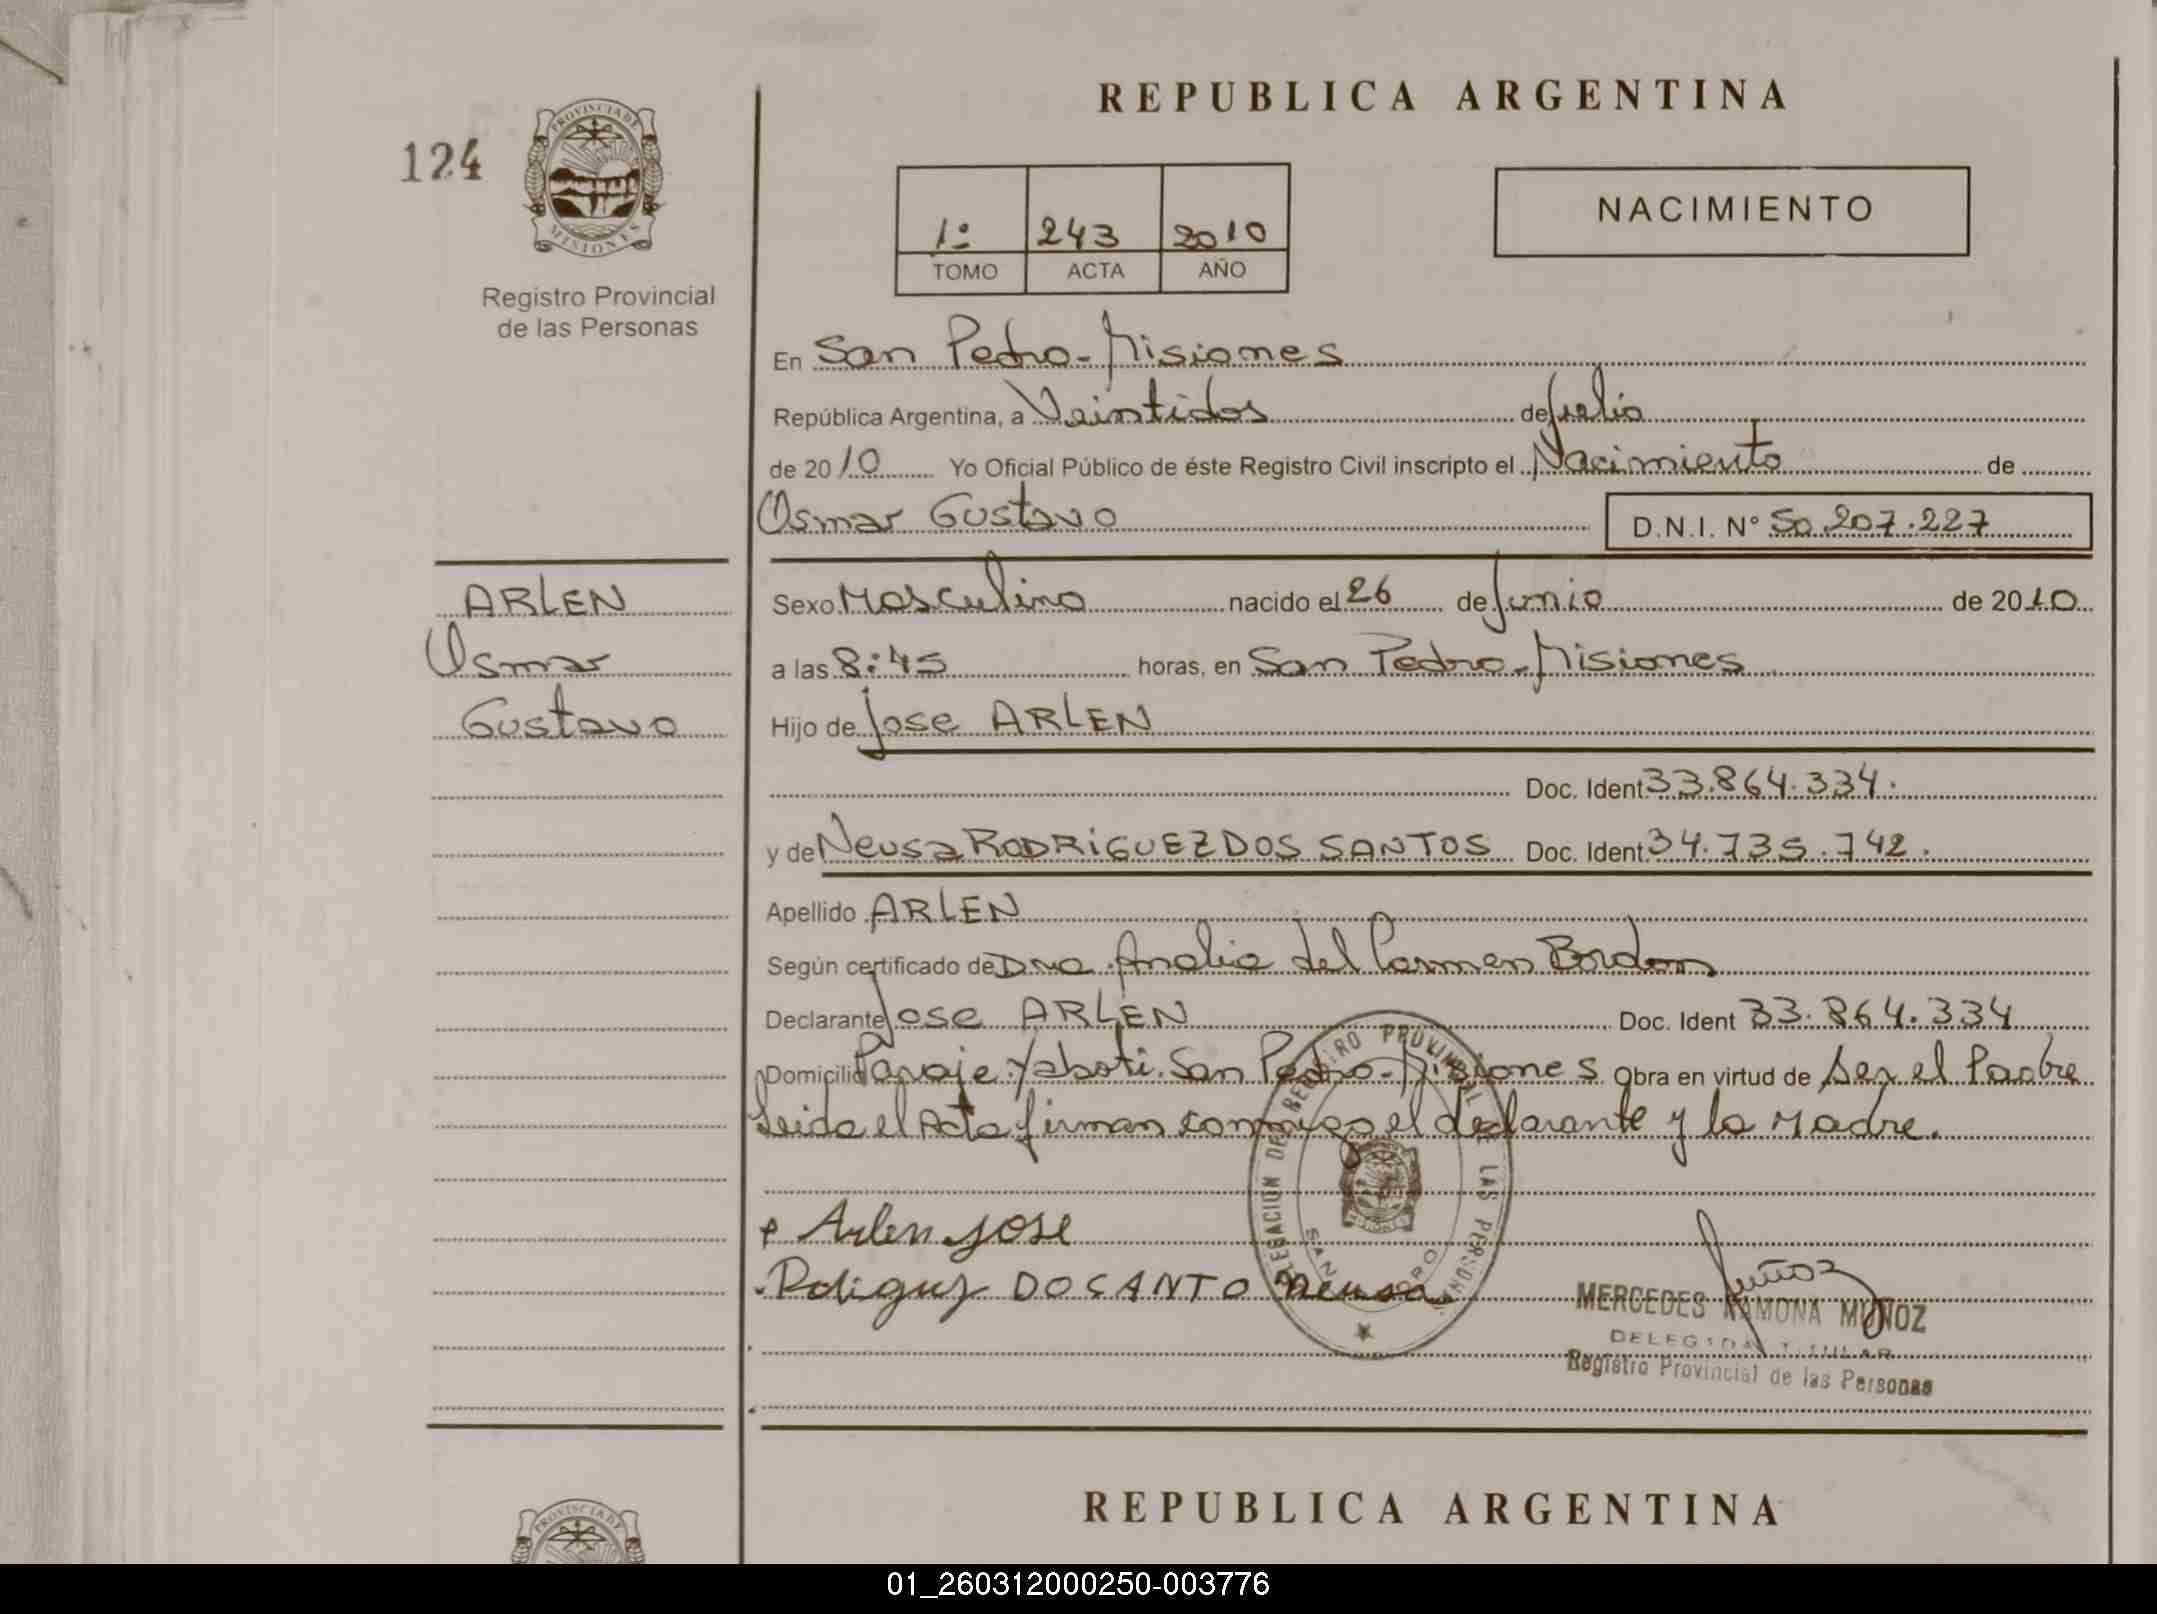 REPUBLICA ARGENTINA
124
PROVINCIA DE
MISIONES
Registro Provincial
de las Personas
1º 243 2010
TOMO ACTA AÑO
NACIMIENTO
En San Pedro - Misiones
República Argentina, a Veintidos de Julio
de 2010 Yo Oficial Público de éste Registro Civil inscripto el Nacimiento de
Osmar Gustavo D.N.I. Nº 50.207.227
ARLEN
Osmar
Gustavo
Sexo Masculino nacido el 26 de Junio de 2010
a las 8:45 horas, en San Pedro - Misiones
Hijo de Jose ARLEN
Doc. Ident 33.864.334.
y de Neusa RODRIGUEZ DOS SANTOS Doc. Ident 34.735.742.
Apellido ARLEN
Según certificado de Dra. Analia del Carmen Bordon
Declarante Jose ARLEN Doc. Ident 33.864.334
Domicilio Paraje Yaboti. San Pedro - Misiones Obra en virtud de Ser el Padre
Leida el Acta firman conmigo el declarante y la Madre.
DELEGACION DEL REGISTRO PROVINCIAL DE LAS PERSONAS
SAN PEDRO
Arlen jose
Rdiguz DO SANTO neusa
Muñoz
MERCEDES RAMONA MUÑOZ
DELEGADA TITULAR
Registro Provincial de las Personas
PROVINCIA DE
REPUBLICA ARGENTINA
01_260312000250-003776